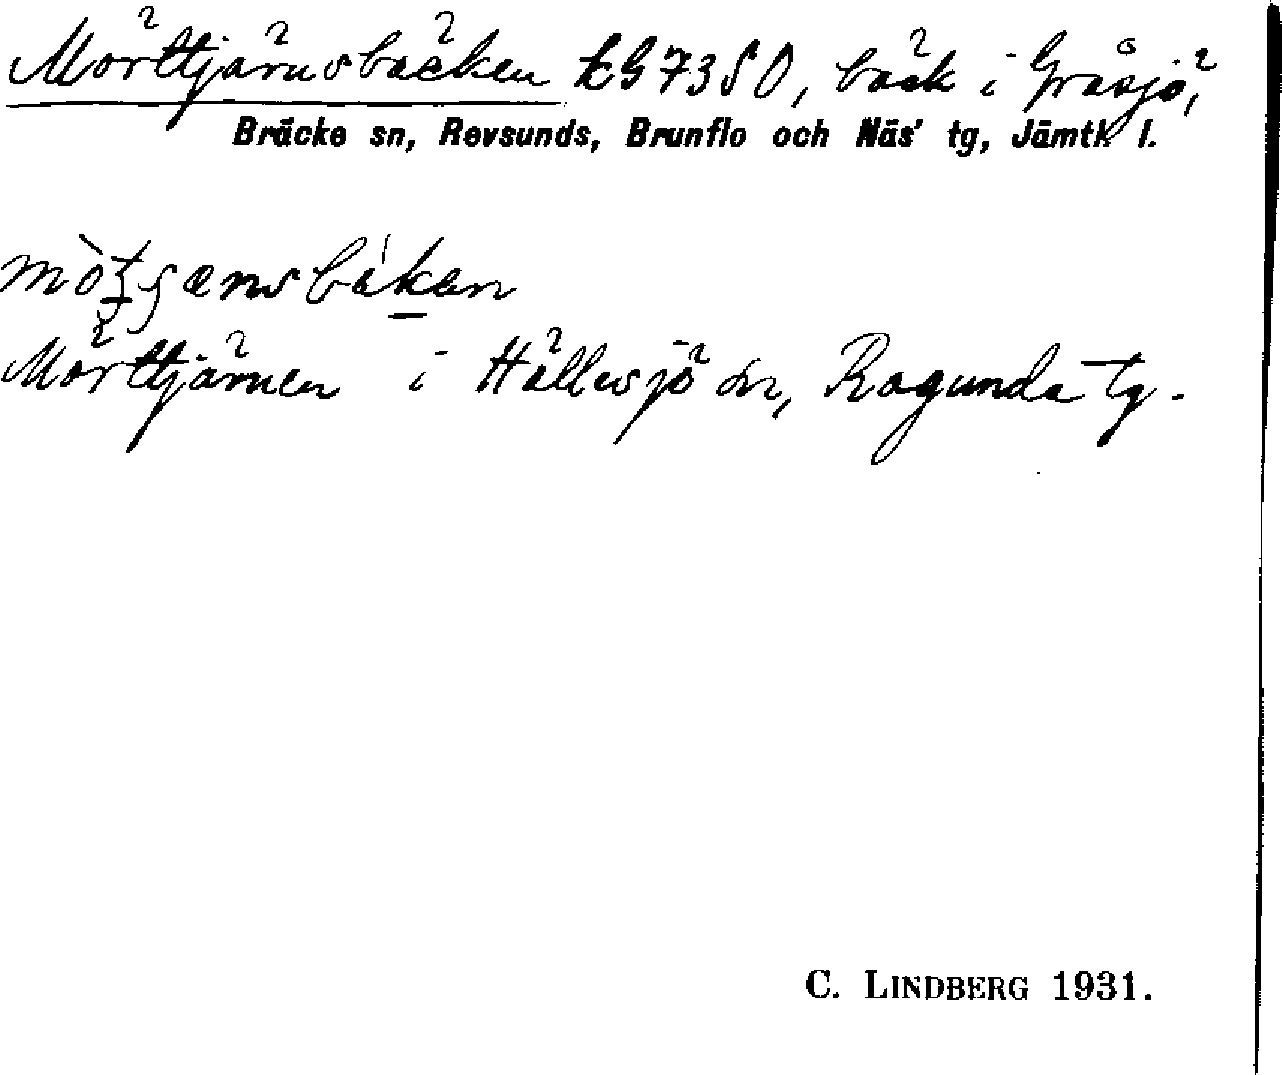 Mörttjärnsbäcken kG 73SO, bäck i Gråsjö,
Bräcke sn, Revsunds, Brunflo och Näs' tg, Jämtl. l.
Mörttjärnen i Hällesjö sn, Ragunda tg.
C. LINDBERG 1931.